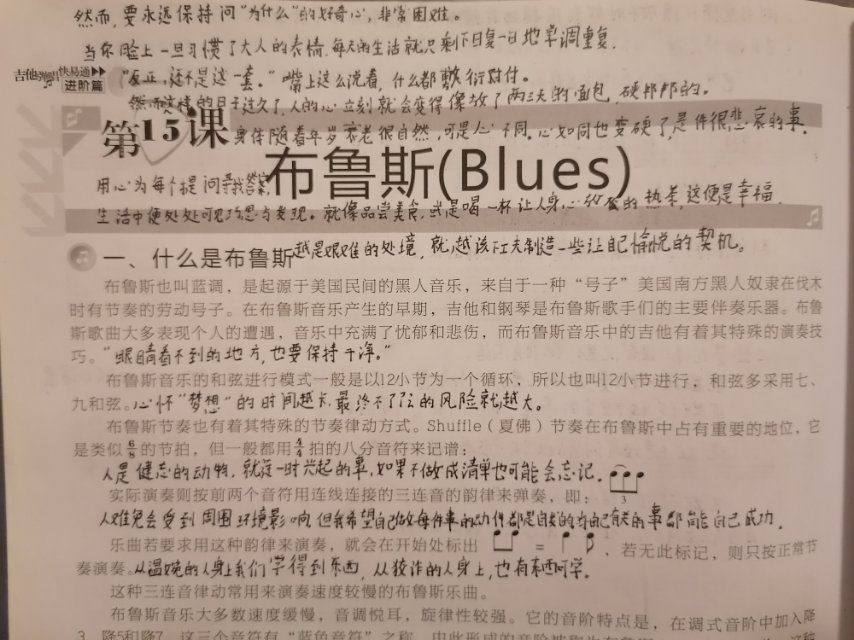 然而，要永远保持问"为什么"的好奇心，非常困难。
当你脸上一旦习惯了大人的表情，每天的生活就只剩下日复一日地单调重复。
吉他弹唱快易通
进阶篇
"反正，还不是这一套。"嘴上这么说着，什么都敷衍对付。
然而这样的日子过久了，人的心立刻就会变得像放了两三天的面包，硬邦邦的。
第15课
身体随着年岁衰老很自然，可是人心不同。心如同也变硬了，是件很悲哀的事。
布鲁斯(Blues)
用心为每个提问寻找答案
生活中便处处可见巧思与发现。就像品尝美食，或是喝一杯让人身心放松的热茶，这便是幸福。
一、什么是布鲁斯
越是艰难的处境，就越该下工夫制造一些让自己愉悦的契机。
布鲁斯也叫蓝调，是起源于美国民间的黑人音乐，来自于一种"号子"美国南方黑人奴隶在伐木
时有节奏的劳动号子。在布鲁斯音乐产生的早期，吉他和钢琴是布鲁斯歌手们的主要伴奏乐器。布鲁
斯歌曲大多表现个人的遭遇，音乐中充满了忧郁和悲伤，而布鲁斯音乐中的吉他有着其特殊的演奏技
巧。"眼睛看不到的地方，也要保持干净。"
布鲁斯音乐的和弦进行模式一般是以12小节为一个循环，所以也叫12小节进行，和弦多采用七、
九和弦。心怀"梦想"的时间越长，最终不了了之的风险就越大。
布鲁斯节奏也有着其特殊的节奏律动方式。Shuffle（夏佛）节奏在布鲁斯中占有重要的地位，它
是类似6/8的节拍，但一般都用4/4拍的八分音符来记谱：
人是健忘的动物，就连一时兴起的事，如果不做成清单也可能会忘记。
实际演奏则按前两个音符用连线连接的三连音的韵律来弹奏，即：
3
人难免会受到周围环境影响，但我希望自己做每件事的动作都是自我的有自己有关的事都能自己成功.
乐曲若要求用这种韵律来演奏，就会在开始处标出 = ，若无此标记，则只按正常节
奏演奏。从温婉的人身上我们学得到东西，从狡诈的人身上，也有东西可学。
这种三连音律动常用来演奏速度较慢的布鲁斯乐曲。
布鲁斯音乐大多数速度缓慢，音调悦耳，旋律性较强。它的音阶特点是，在调式音阶中加入降
3、降5和降7，这三个音符有"蓝色音符"之称，由此形成的音阶被称为布鲁斯